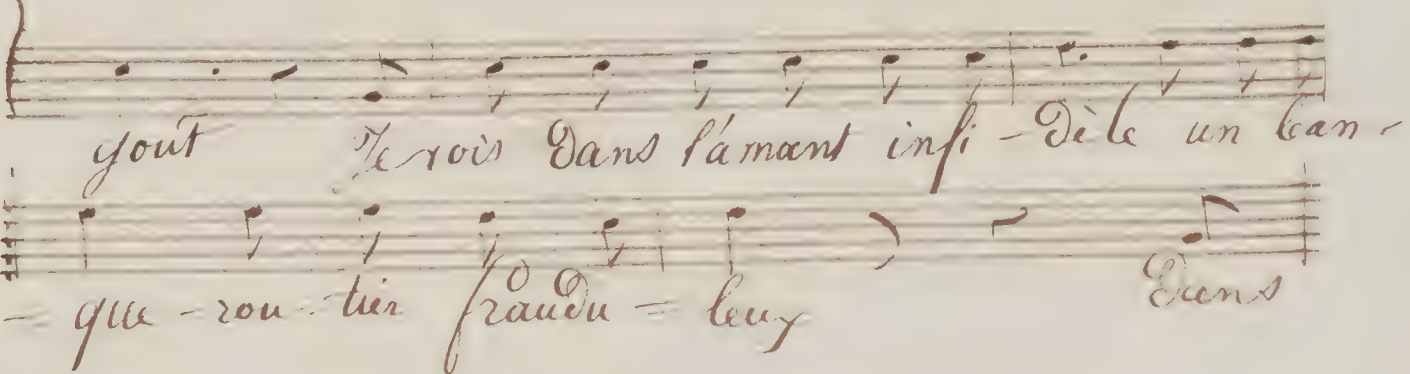 gout Je vois Dans l'amant infi - Dèle un ban -
- que - rou - tier fraudu = leux Dans